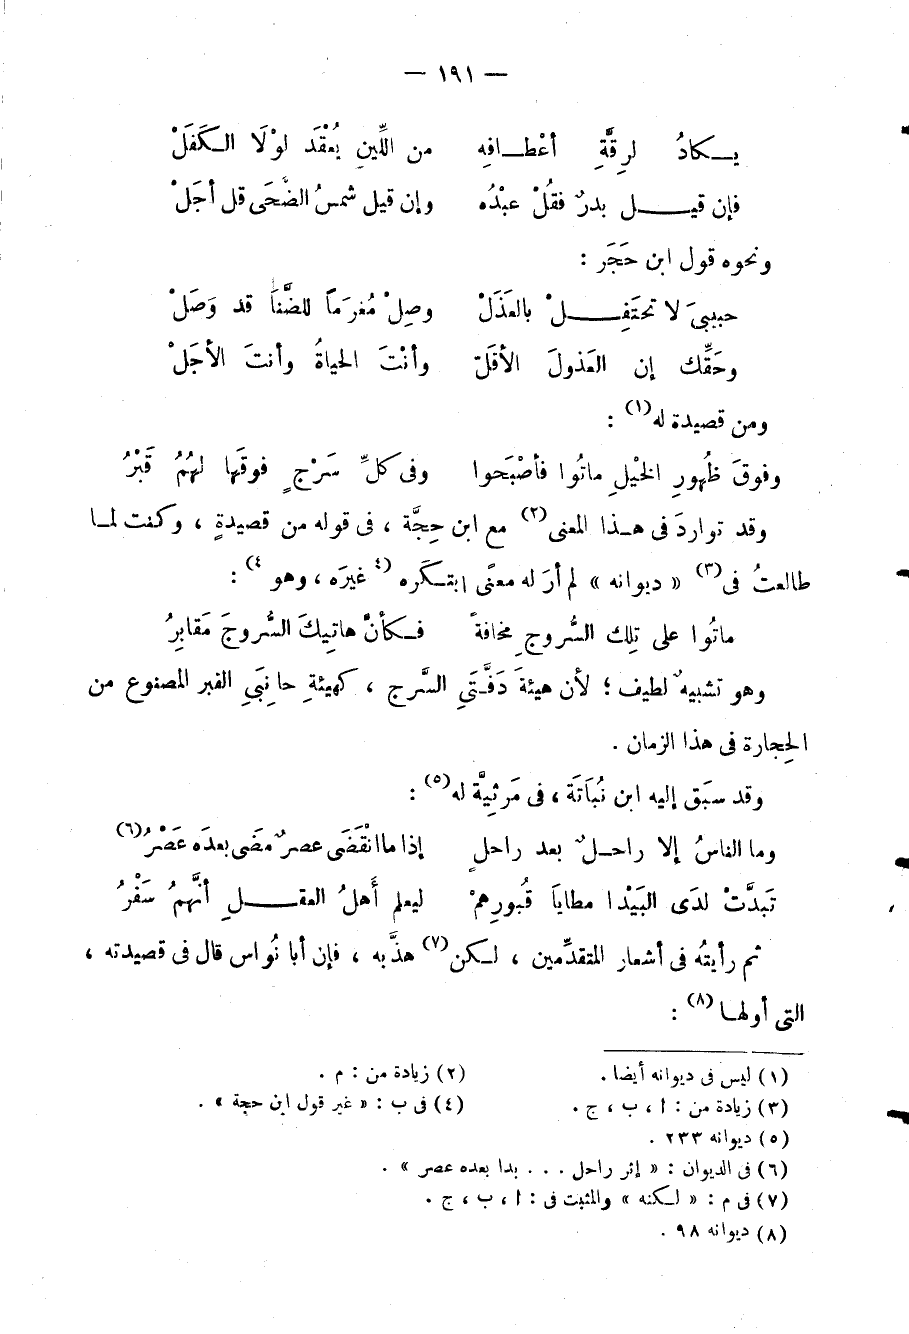 — ١٩١ —
يـكادُ لرِقَّةِ أعْطـافِه من اللِّينِ يُعْقَد لوْلَا الـكَفَلْ
فإن قيـل بدرٌ فقُلْ عبْدُه وإن قيل شمسُ الضُّحَى قل أجَلْ
ونحوه قول ابن حَجَر :
حبيبىَ لا تحتَفِـلْ بالعَذَلْ وصِلْ مُغرَماً للضَّنَا قد وَصَلْ
وحَقِّك إن العَذولَ الأقَلّ وأنْتَ الحياةُ وأنتَ الأجَلْ
ومن قصيدة له(١) :
وفوقَ ظُهورِ الخيْلِ ماتُوا فأصْبَحوا وفى كلِّ سَرْجٍ فوقَها لهُمُ قَبْرُ
وقد تواردَ فى هـذا المعنى(٢) مع ابن حِجَّة ، فى قوله من قصيدةٍ ، وكنت لمـا
طالعتُ فى(٣) « ديوانه » لم أرَ له معنًى ابتـكَره (٤ غيرَه ، وهو ٤) :
ماتُوا على تِلك السُّروجِ مخافةً فـكأنَّ هاتِيكَ السُّروجَ مَقابِرُ
وهو تشبيهٌ لطيف ؛ لأن هيئةَ دَفَّتَىِ السَّرج ، كهيئةِ جانبَىِ القبر المصنوع من
الحِجارة فى هذا الزمان .
وقد سبَق إليه ابن نُبَاتَة ، فى مَرثيَّة له(٥) :
وما الناسُ إلا راحـلٌ بعد راحلٍ إذا ما انْقَضَى عصرٌ مضَى بعدَه عَصْرُ(٦)
تَبدَّتْ لدَى البَيْدا مطاياَ قُبورِهمْ ليعلم أَهلُ العقـلِ أنَّهمُ سَفْرُ
ثم رأيتُه فى أشعار المتقدِّمين ، لـكن(٧) هذَّبه ، فإن أبا نُواس قال فى قصيدته ،
التى أولهـا(٨) :
(١) ليس فى ديوانه أيضا . (٢) زيادة من : م .
(٣) زيادة من : ا ، ب ، ج . (٤) فى ب : « غير قول ابن حجة » .
(٥) ديوانه ٢٣٣ .
(٦) فى الديوان : « إثر راحل . . . بدا بعده عصر » .
(٧) فى م : « لـكنه » والمثبت فى : ا ، ب ، ج .
(٨) ديوانه ٩٨ .